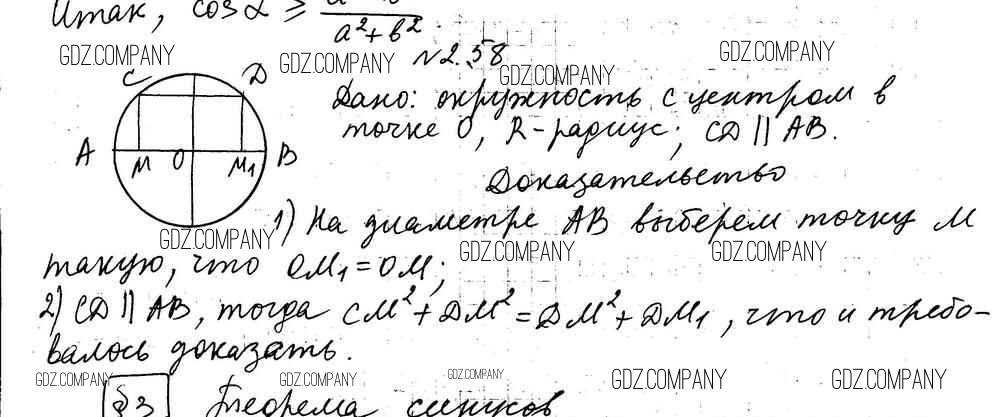 Итак, cos α ≥ / a²+b²
GDZ.COMPANY GDZ.COMPANY №2.58 GDZ.COMPANY GDZ.COMPANY
C D
Дано: окружность с центром в
точке O, R-радиус; CD || AB.
A M O M₁ B
Доказательство
1) На диаметре AB выберем точку M
GDZ.COMPANY GDZ.COMPANY GDZ.COMPANY
такую, что OM₁ = OM;
2) CD || AB, тогда CM² + DM² = DM² + DM₁, что и требо-
валось доказать.
GDZ.COMPANY GDZ.COMPANY GDZ.COMPANY GDZ.COMPANY GDZ.COMPANY
§3 Теорема синусов